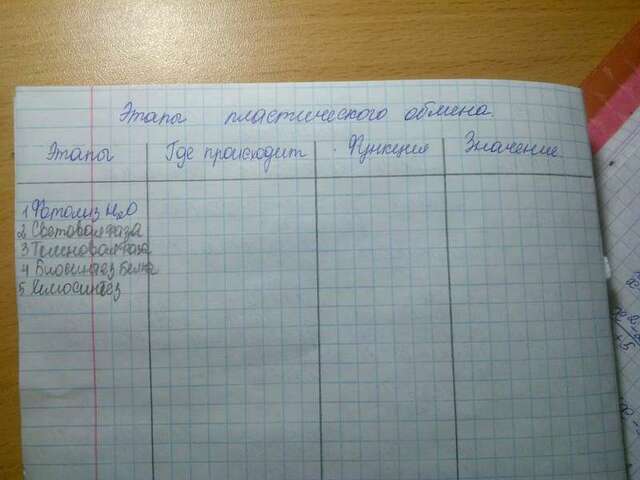 Этапы пластического обмена.
Этапы Где происходит Функция Значение
1 Фотолиз H₂O
2 Световая фаза
3 Темновая фаза
4 Биосинтез белка
5 Хемосинтез